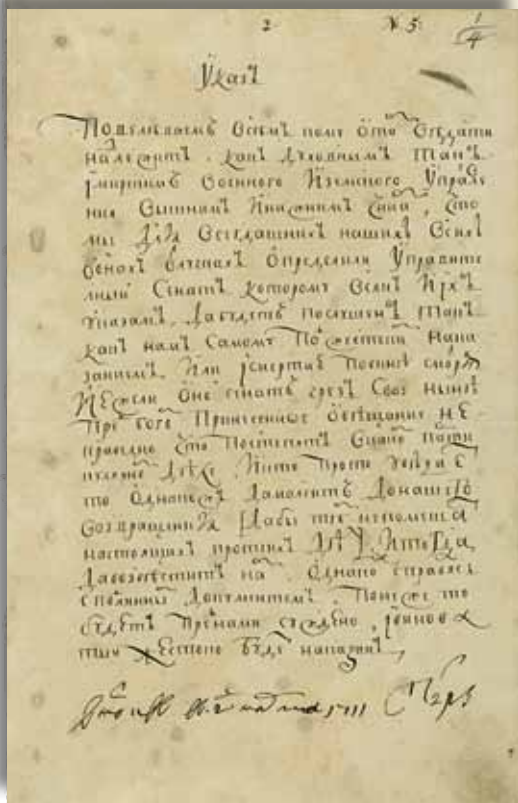 2 № 5: 1/4
Указъ
Повелѣваемъ всѣмъ кому отомъ вѣдати
надлежитъ, какъ духовнымъ такъ
імирскимъ военного Иземского управле
ния вышнимъ Инижнимъ чинамъ, что
мы для всегдашнихъ нашихъ всихъ
воинахъ отлучкахъ определили управите
лныи Сенатъ которому всякъ Иіхъ
указамъ да будетъ послушенъ такъ
какъ намъ самому подъжестокимъ нака
заниемъ. Или ісмертию повинѣ смотря
Иежели оной сенатъ чрезъ свое нынѣ
предъ богомъ принесенное обѣщание не
праведно что поступятъ
дѣле. Икто прото увѣдаетъ
то однакожъ дамолчитъ донашего
возвращения дабы тѣмъ непомешать
настоящихъ протчихъ дѣлъ, Итогда
давозвѣститъ намъ. Однако справясь
сподлиннымъ документомъ. Понеже то
будетъ преднами суждено, івинова
тыи жестоко будетъ наказанъ
1711 Петръ